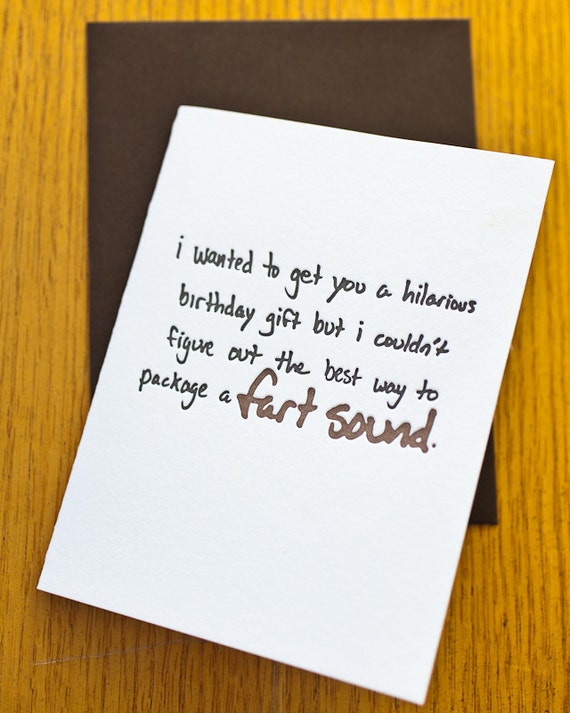 i wanted to get you a hilarious
birthday gift but i couldn't
figure out the best way to
package a fart sound.